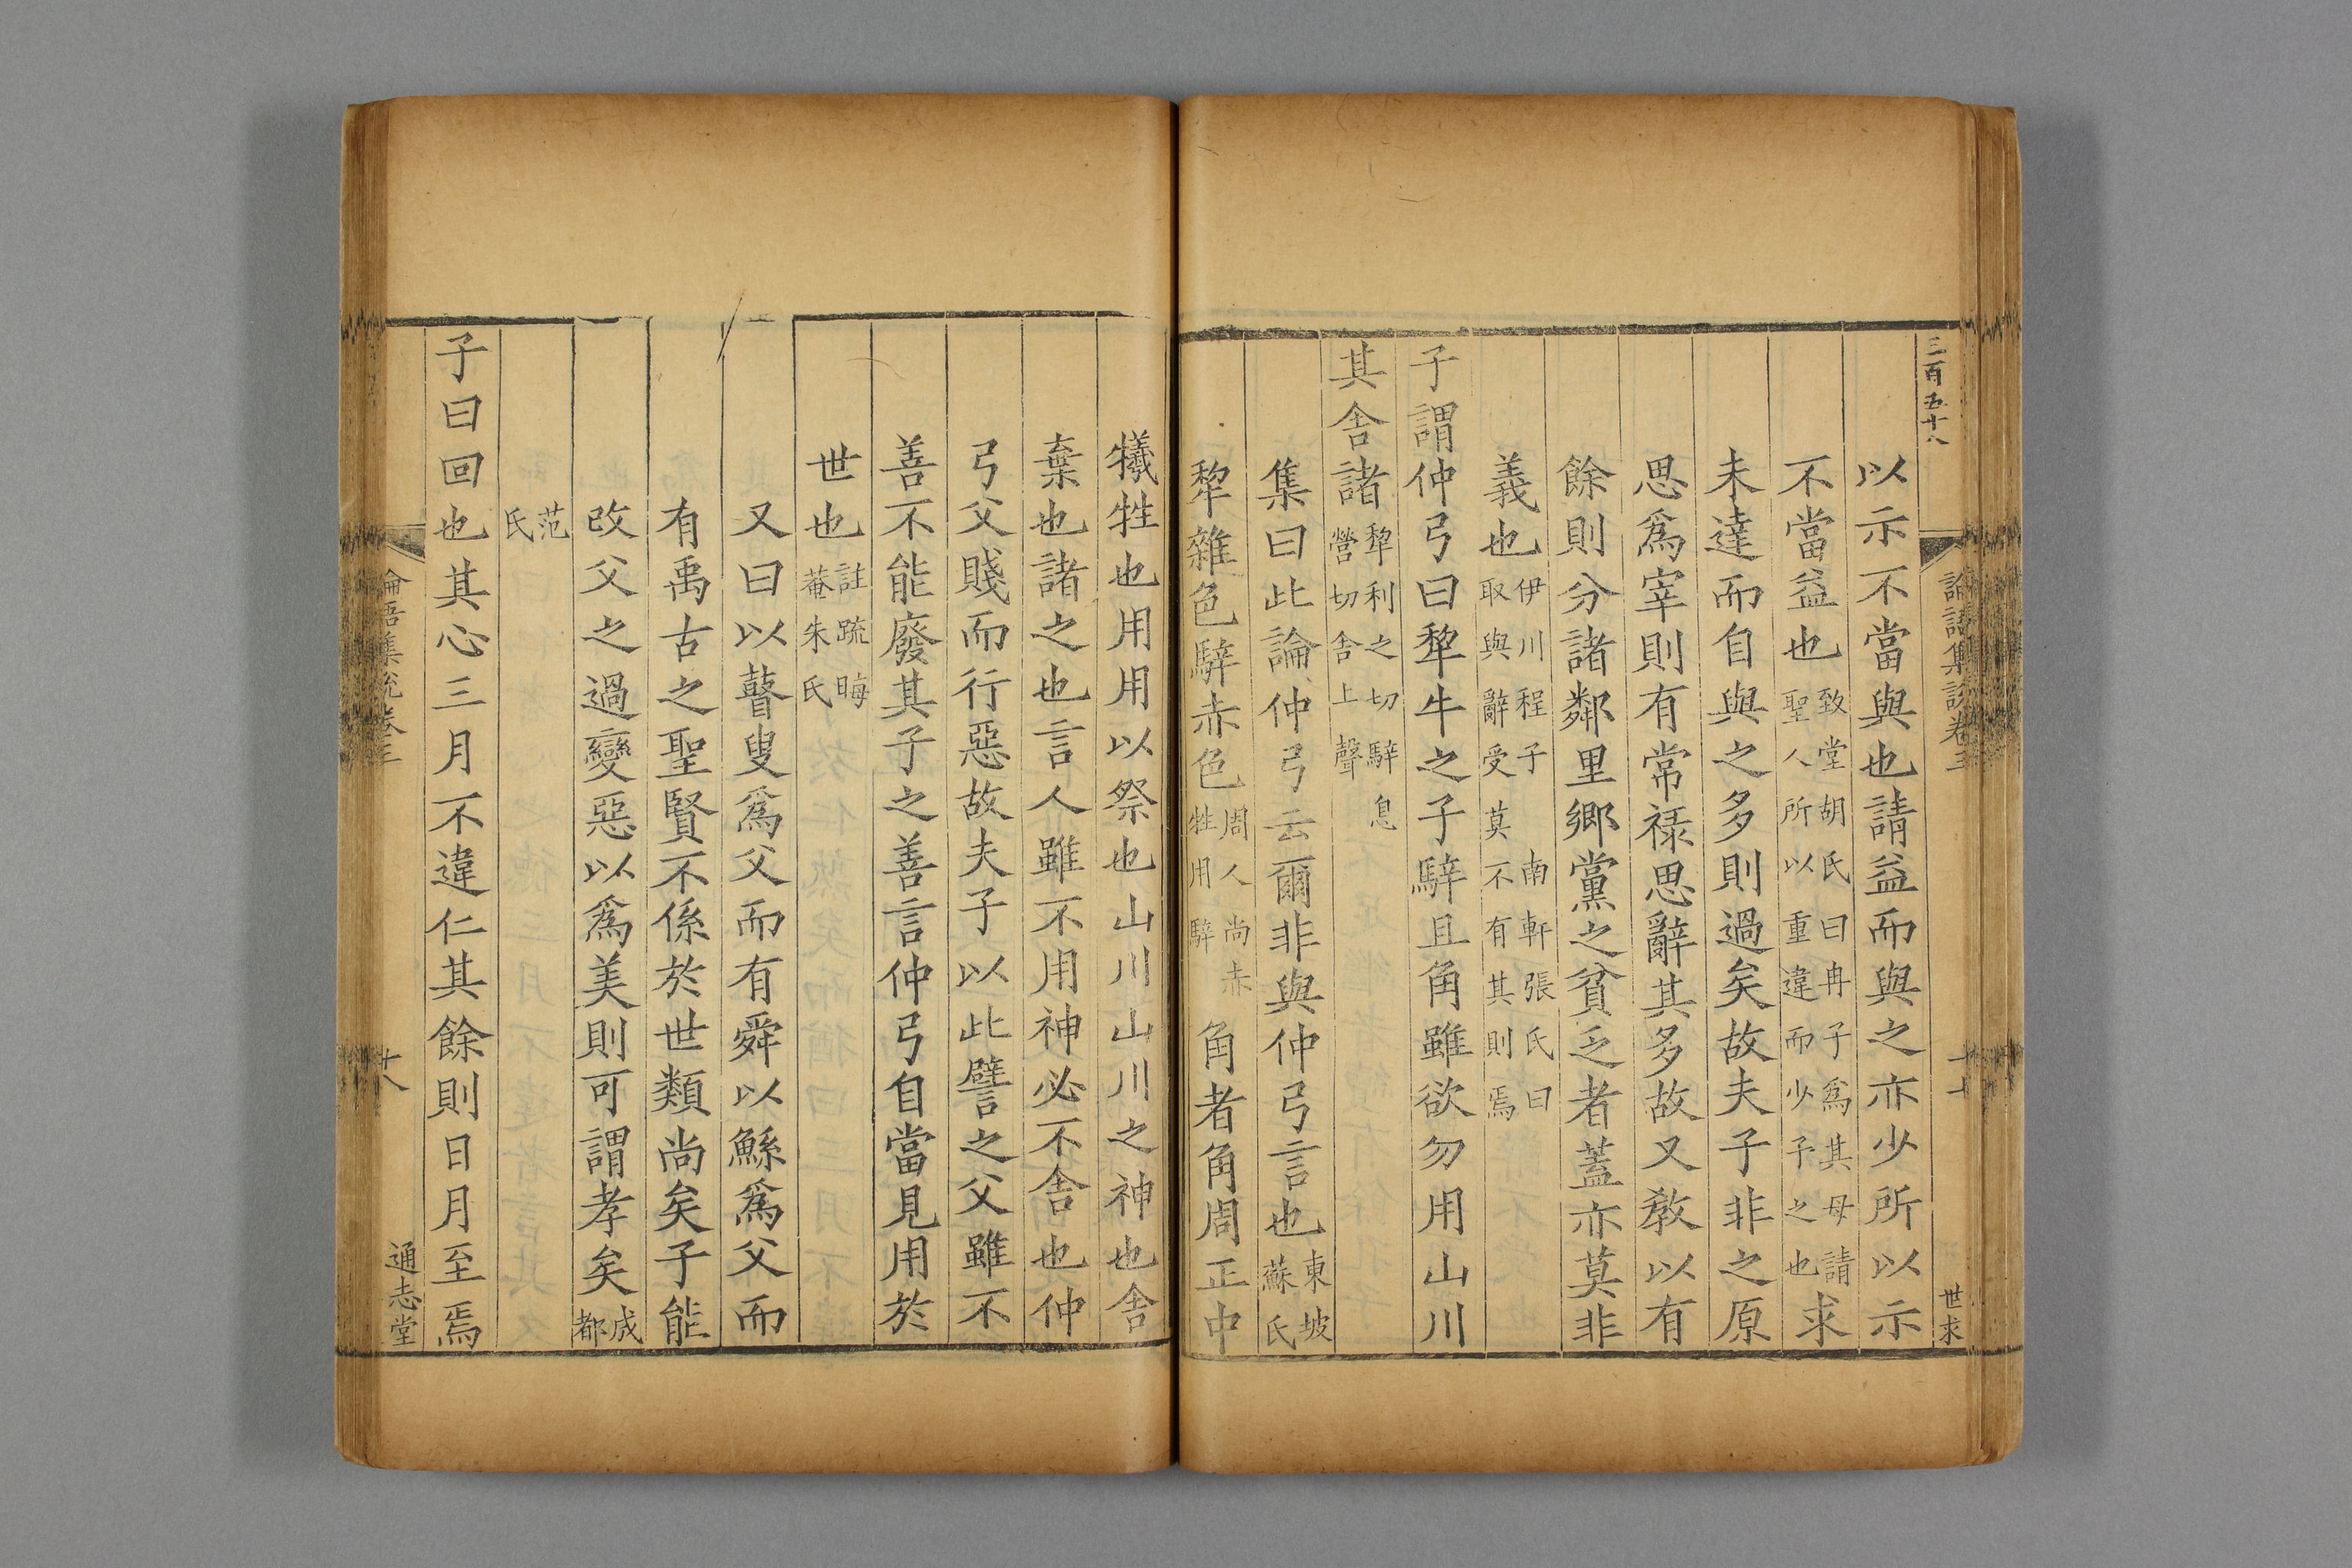 三百五十八
論語集説卷三
十七
世求
以示不當與也請益而與之亦少所以示
不當益也致堂胡氏曰冉子爲其母請聖人所以重違而少予之也求
未達而自與之多則過矣故夫子非之原
思爲宰則有常祿思辭其多故又教以有
餘則分諸鄰里鄉黨之貧乏者蓋亦莫非
義也伊川程子南軒張氏曰取與辭受莫不有其則焉
子謂仲弓曰犂牛之子騂且角雖欲勿用山川
其舍諸犂利之切騂息營切舍上聲
集曰此論仲弓云爾非與仲弓言也東坡蘇氏
犂雜色騂赤色周人尚赤牲用騂角者角周正中
犧牲也用用以祭也山川山川之神也舍
棄也諸之也言人雖不用神必不舍也仲
弓父賤而行惡故夫子以此譬之父雖不
善不能廢其子之善言仲弓自當見用於
世也註疏晦菴朱氏
又曰以瞽叟爲父而有舜以鯀爲父而
有禹古之聖賢不係於世類尚矣子能
改父之過變惡以爲美則可謂孝矣成都
范氏
子曰回也其心三月不違仁其餘則日月至焉
論語集説卷三
十八
通志堂